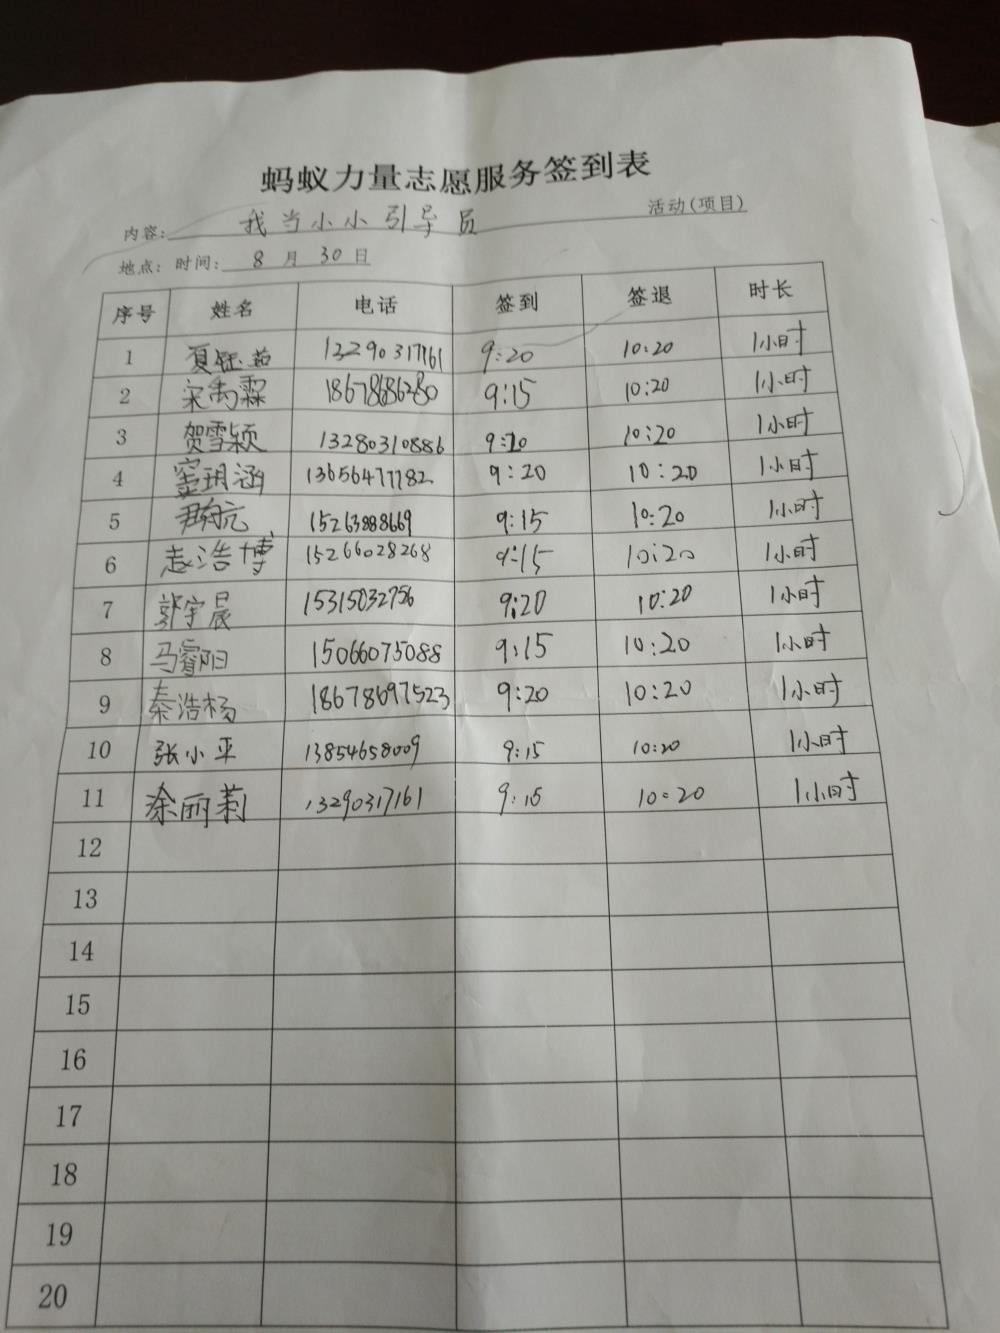 蚂蚁力量志愿服务签到表
内容: 我当小小引导员 活动(项目)
地点: 时间: 8月30日
序号 姓名 电话 签到 签退 时长
1 夏钰茹 13290317161 9:20 10:20 1小时
2 宋禹霖 18678686280 9:15 10:20 1小时
3 贺雪颖 13280310886 9:20 10:20 1小时
4 玥涵 13656477782 9:20 10:20 1小时
5 15263888669 9:15 10:20 1小时
6 浩博 15266028268 9:15 10:20 1小时
7 郭宇晨 15315032756 9:20 10:20 1小时
8 马睿阳 15066075088 9:15 10:20 1小时
9 秦浩杨 18678697523 9:20 10:20 1小时
10 张小平 13854658009 9:15 10:20 1小时
11 涂丽莉 13290317161 9:15 10:20 1小时
12
13
14
15
16
17
18
19
20